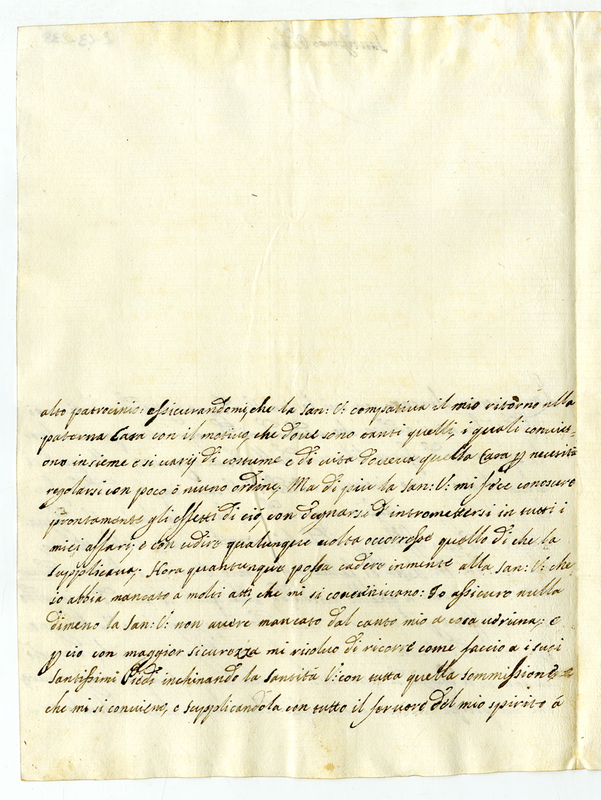 alto patrocinio: assicurandomi, che la San: V: compativa il mio ritorno alla
paterna Casa con il motivo, che dove sono tanti quelli, i quali convivo-
ono insieme e si varij di costume e di vita doveva quella Casa p necessità
regolarsi con poco ò niuno ordine. Ma di più la San: V: mi fece conoscere
prontamente gli effetti di ciò con degnarse d'intromettersi in tutti i
miei affari, e con udire qualunque volta occorresse quello di che la
supplicava; Hora quantunque possa cadere inmente alla San: V: che
io abbia mancato à molti atti, che mi si convenivano: Io assicuro nulla
dimeno la San: V: non avere mancato dal canto mio a cosa veruna; e
p ciò con maggior sicurezza mi risolvo di ricorre come faccio a i suoi
Santissimi Piedi inchinando la Santità V: con tutta quella sommissione
che mi si conviene, e supplicandola con tutto il fervore del mio spirito á